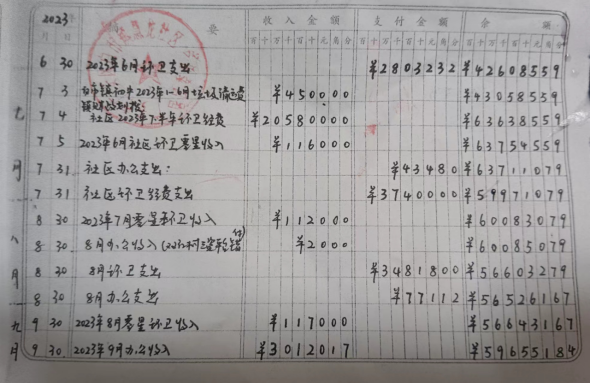 2023 摘 要 收入金额 支付金额 余 额
月 日 百十万千百十元角分 百十万千百十元角分 百十万千百十元角分
6 30 2023年6月环卫支出 ¥2803232 ¥42608559
7 3 镇 2023年1-6月垃圾清运费 ¥450000 ¥43058559
7 4 社区2023年 半年环卫经费 ¥20580000 ¥63638559
7 5 2023年6月社区环卫零星收入 ¥116000 ¥63754559
7 31 社区办公支出: ¥43480 ¥63711079
7 31 社区环卫经费支出 ¥3740000 ¥59971079
8 30 2023年7月零星环卫收入 ¥112000 ¥60083079
8 30 8月办公收入 ¥2000 ¥60085079
8 30 8月环卫支出 ¥3481800 ¥56603279
8 30 8月办公支出 ¥77112 ¥56526167
9 30 2023年8月零星环卫收入 ¥117000 ¥56643167
9 30 2023年9月办公收入 ¥3012017 ¥59655184
七月
八月
九月